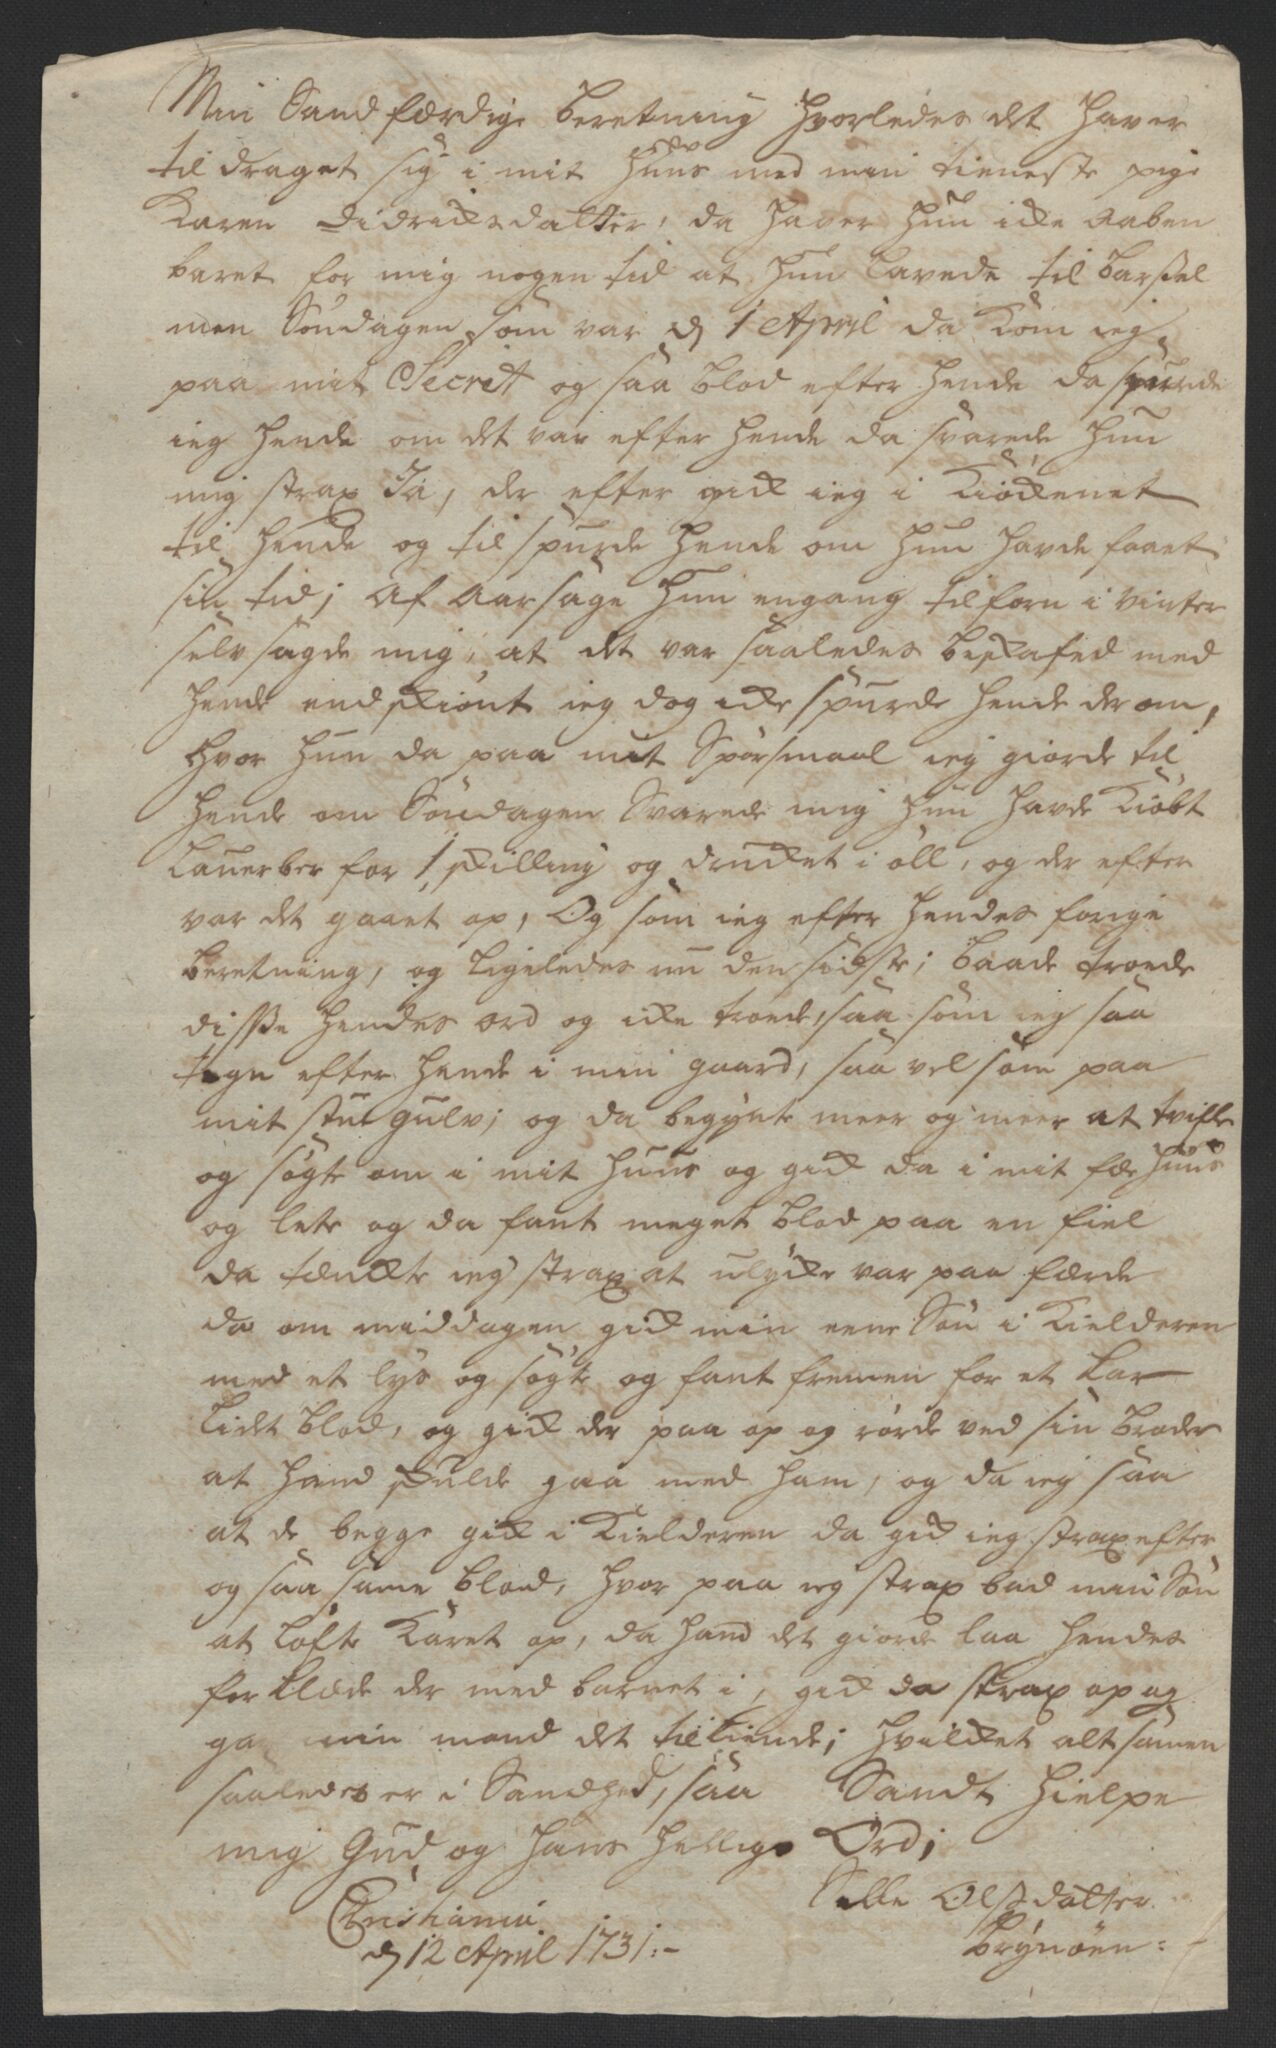 Min Sandfærdige beretning hvorledes det haver
til draget sig i mit huus med min tieneste pige
Karen Didrichsdatter, da haver hun icke aaben
baret for mig nogen tid at hun lavede til barsel
men Søndagen som var d 1 April da kom ieg
paa mit Secrett og saa blod efter hende da spurde
ieg hende om det var efter hende da svarede hun
mig strax Ja, der efter gick ieg i kiøckenet
til hende og til spurde hende om hun havde faaet
sin tid; af aarsage hun engang tilforn i vinter
selv sagde mig, at det var saaledes beskafed med
hende endskiønt ieg dog icke spurde hende der om,
hvor hun da paa mit Spørsmaal ieg giorde til
hende om Søndagen Svarede mig hun havde kiøbt
Lauerber for 1 skilling og drucket i øll, og der efter
var det gaaet op, Og som ieg efter hendes forige
beretning, og ligeledes nu den sidste; baade troede
disse hendes ord og icke troede, saa som ieg saa
tegn efter hende i min gaard, saa vel som paa
mit stue gulv; og da begynte meer og meer at tvifle
og søgte om i mit huus og gick da i mit fæhuus
og lete og da fant meget blod paa en fiel
da tænckte ieg strax at ulycke var paa færde
da om middagen gick min eene Søn i Kielderen
med et lys og søgte og fant fremen for et kar
lidt blod, og gick der paa op og rørde ved sin broder
at hand skulde gaa med ham, og da ieg saa
at de begge gick i Kielderen da gick ieg strax efter
og saa same blod, hvor paa ieg strax bad min Søn
at løfte Karet op, da hand det giorde laa hendes
forklæde der med barnet i, gick da strax op og
ga min mand det tilkiende; hvilcket alt samen
saaledes er i Sandhed, saa Sandt hielpe
mig Gud og hans hellige Ord;
Sille Olsdatter
Christiania
d 12 April 1731:- Brynøen: